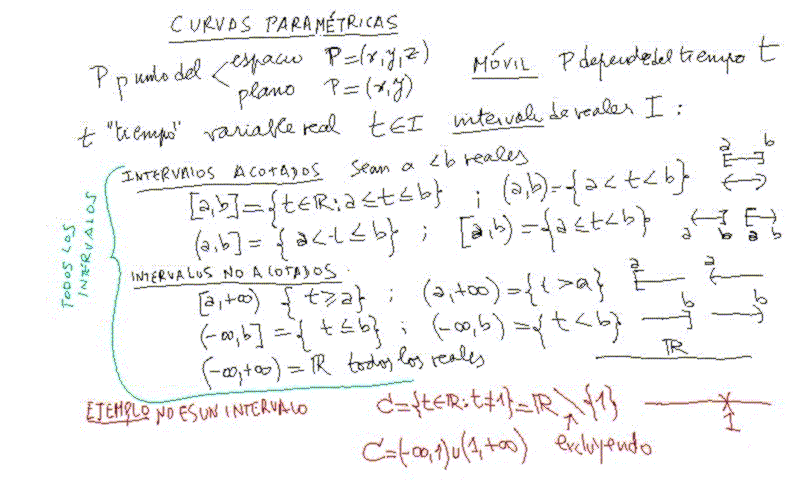 CURVAS PARAMÉTRICAS
P punto del < espacio P=(x,y,z) MÓVIL P depende del tiempo t
plano P=(x,y)
t "tiempo" variable real t∈I intervalo de reales I:
TODOS LOS INTERVALOS
INTERVALOS ACOTADOS Sean a<b reales
[a,b]={t∈ℝ: a≤t≤b} ; (a,b)={a<t<b} a b
(a,b]={a<t≤b} ; [a,b)={a≤t<b} a b a b
INTERVALOS NO ACOTADOS
[a,+∞) {t≥a} ; (a,+∞)={t>a} a a
(-∞,b]={t≤b} ; (-∞,b)={t<b} b b
(-∞,+∞)=ℝ todos los reales ℝ
EJEMPLO NO ES UN INTERVALO C={t∈ℝ: t≠1}=ℝ\{1} 1
C=(-∞,1)∪(1,+∞) excluyendo